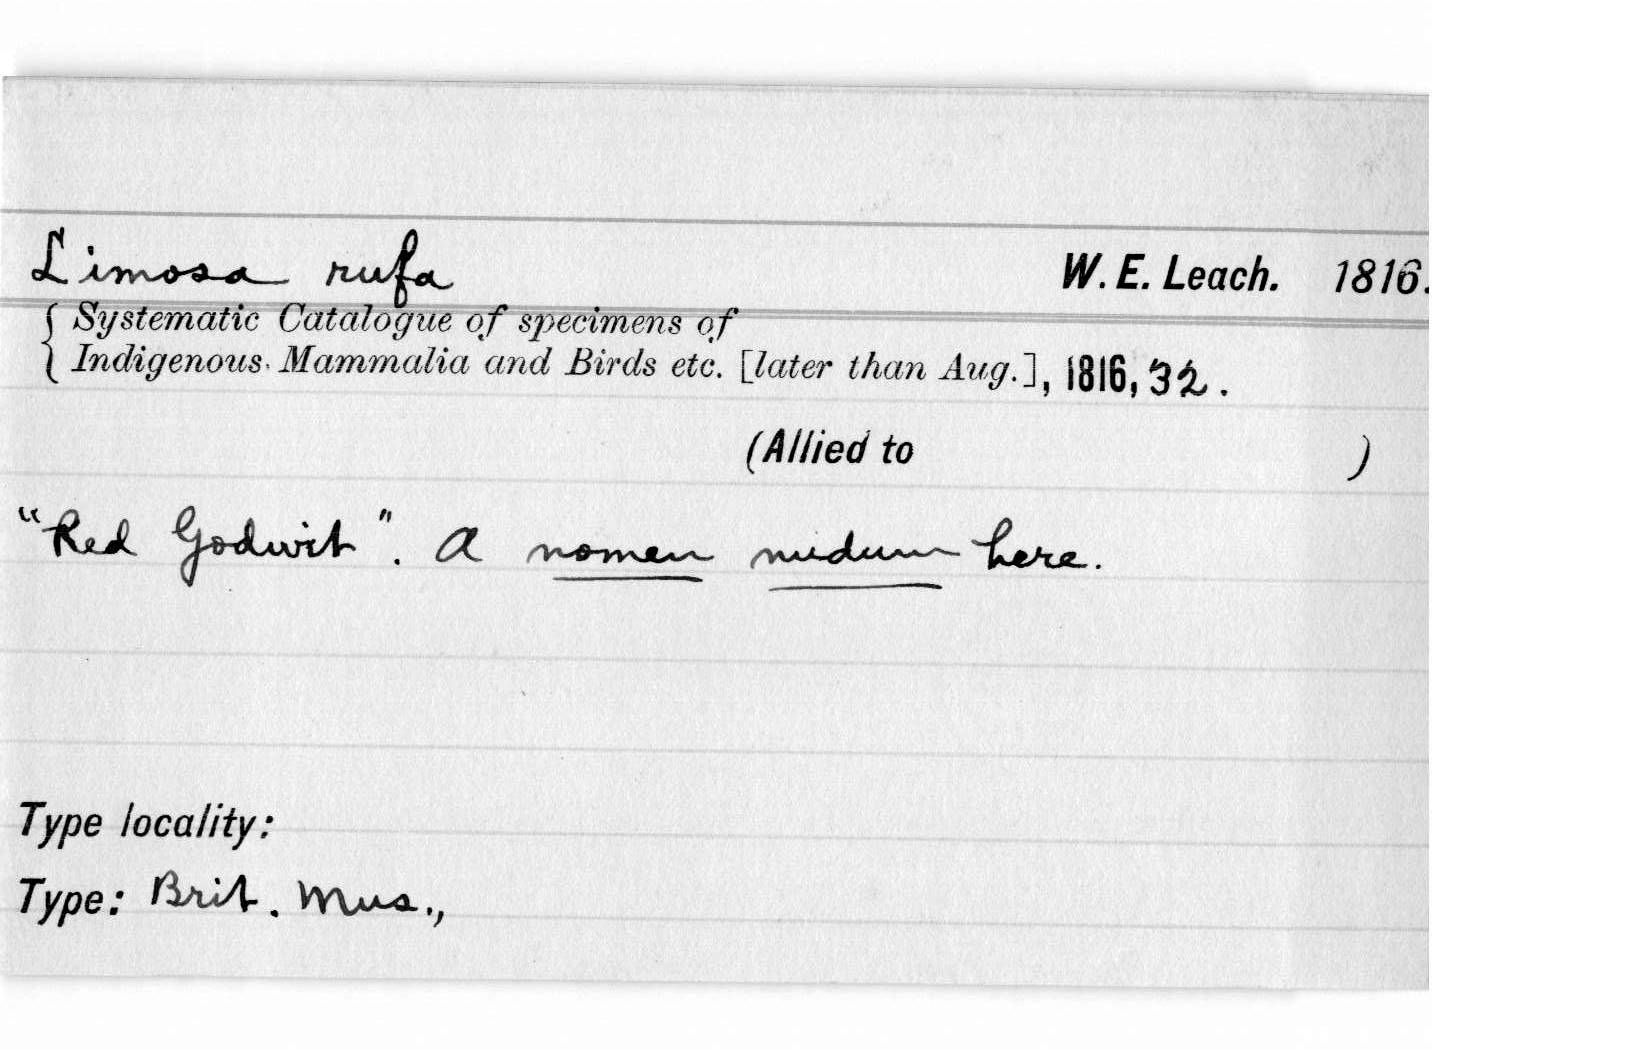 Limosa rufa W. E. Leach. 1816.
{ Systematic Catalogue of specimens of
Indigenous. Mammalia and Birds etc. [later than Aug.], 1816, 32.
(Allied to )
"Red Godwit". A nomen nudum here.
Type locality:
Type: Brit. Mus.,